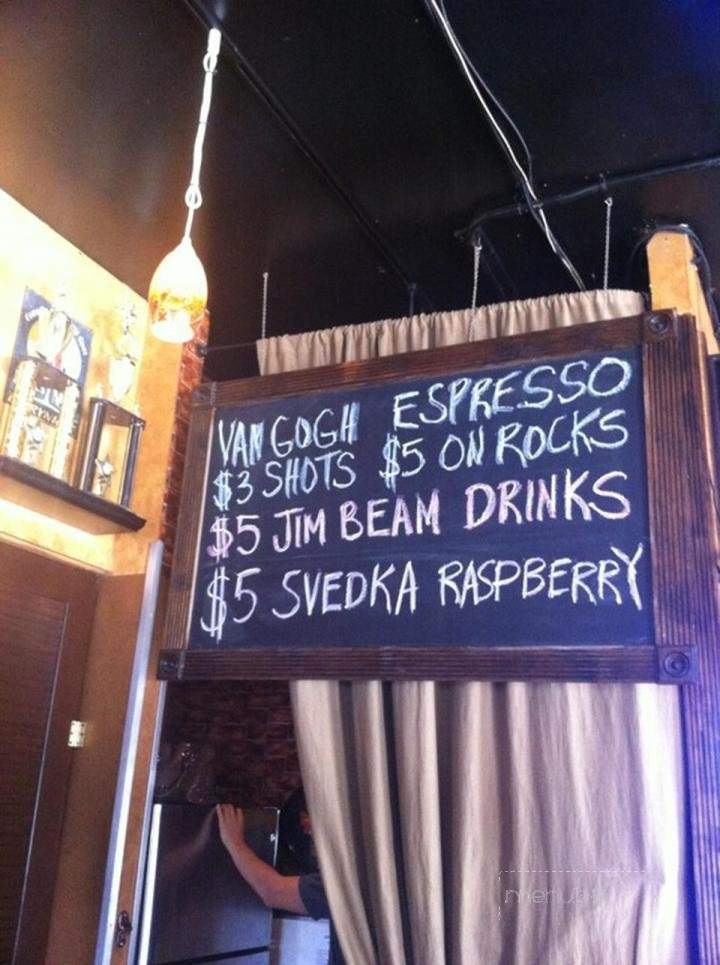 VAN GOGH ESPRESSO
$3 SHOTS $5 ON ROCKS
$5 JIM BEAM DRINKS
$5 SVEDKA RASPBERRY